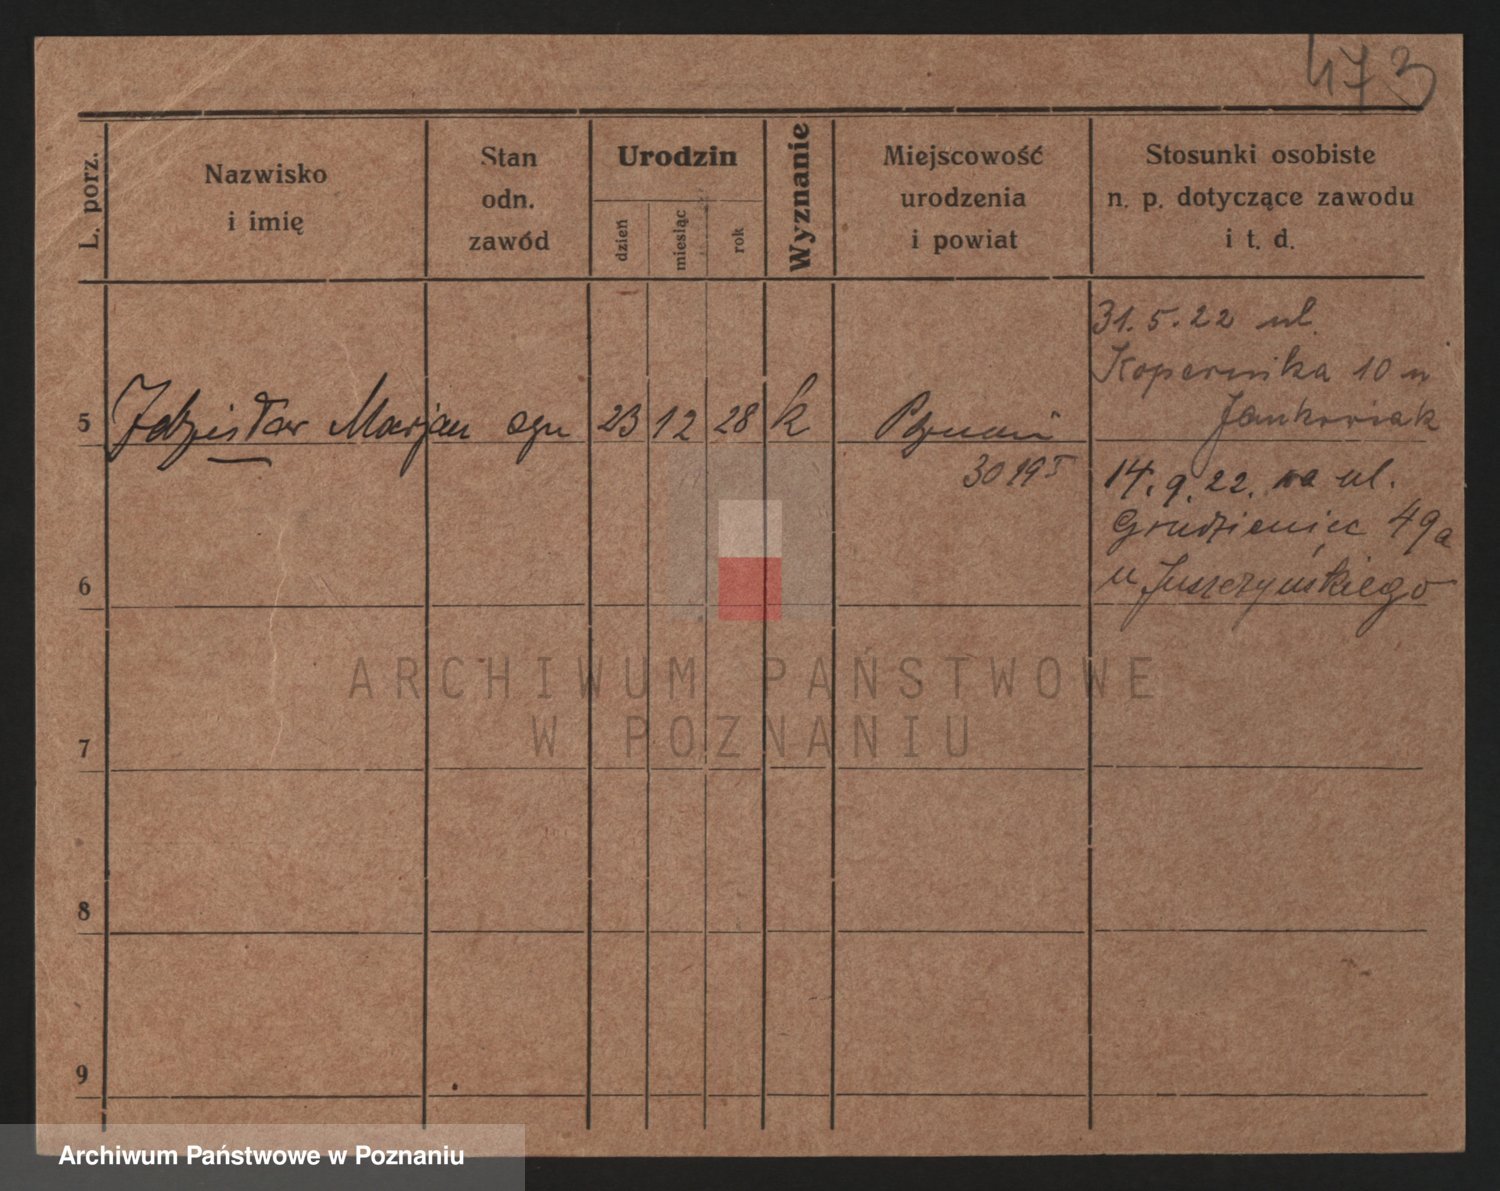 473
L. porz.
Nazwisko
i imię
Stan
odn.
zawód
Urodzin
dzień
miesiąc
rok
Wyznanie
Miejscowość
urodzenia
i powiat
Stosunki osobiste
n. p. dotyczące zawodu
i t. d.
31. 5. 22 ul.
Kopernika 10 u
Jankowiak
5 Zdzisław Marjan syn 23 12 28 k Poznań
3019 I
14. 9. 22. na ul.
Grudzieniec 49a
u Juszczyńskiego
6
7
8
9
ARCHIWUM PAŃSTWOWE
W POZNANIU
Archiwum Państwowe w Poznaniu